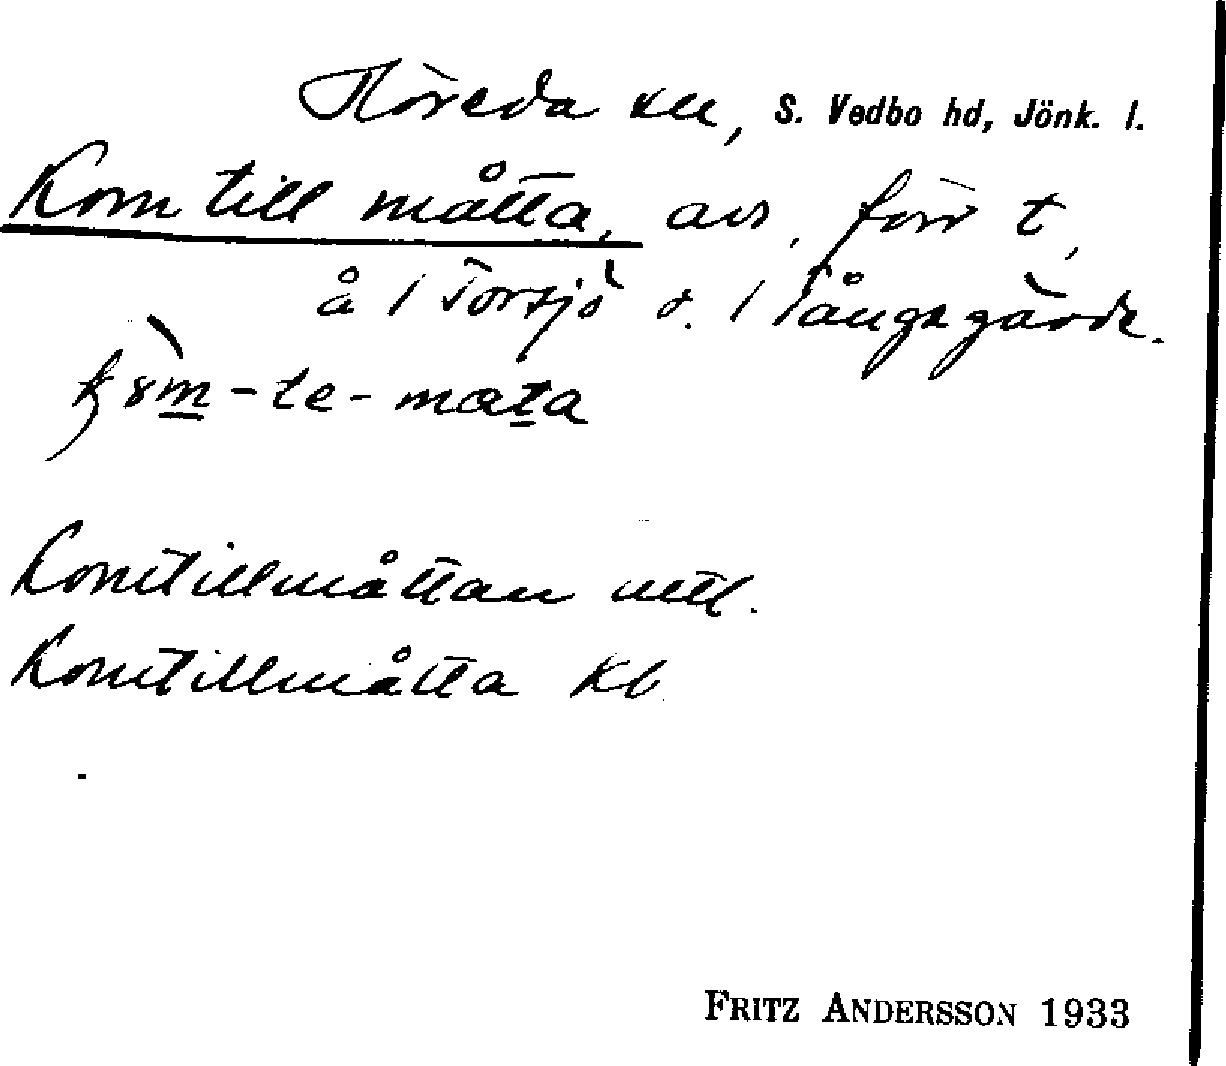 Höreda sn, S. Vedbo hd, Jönk. l.
Kom till måtta, avs, förr t,
å 1 Torsjö o. 1 Långsgärde.
-te-mata
Komtillmåttan uttl.
Komtillmåtta Kb
FRITZ ANDERSSON 1933